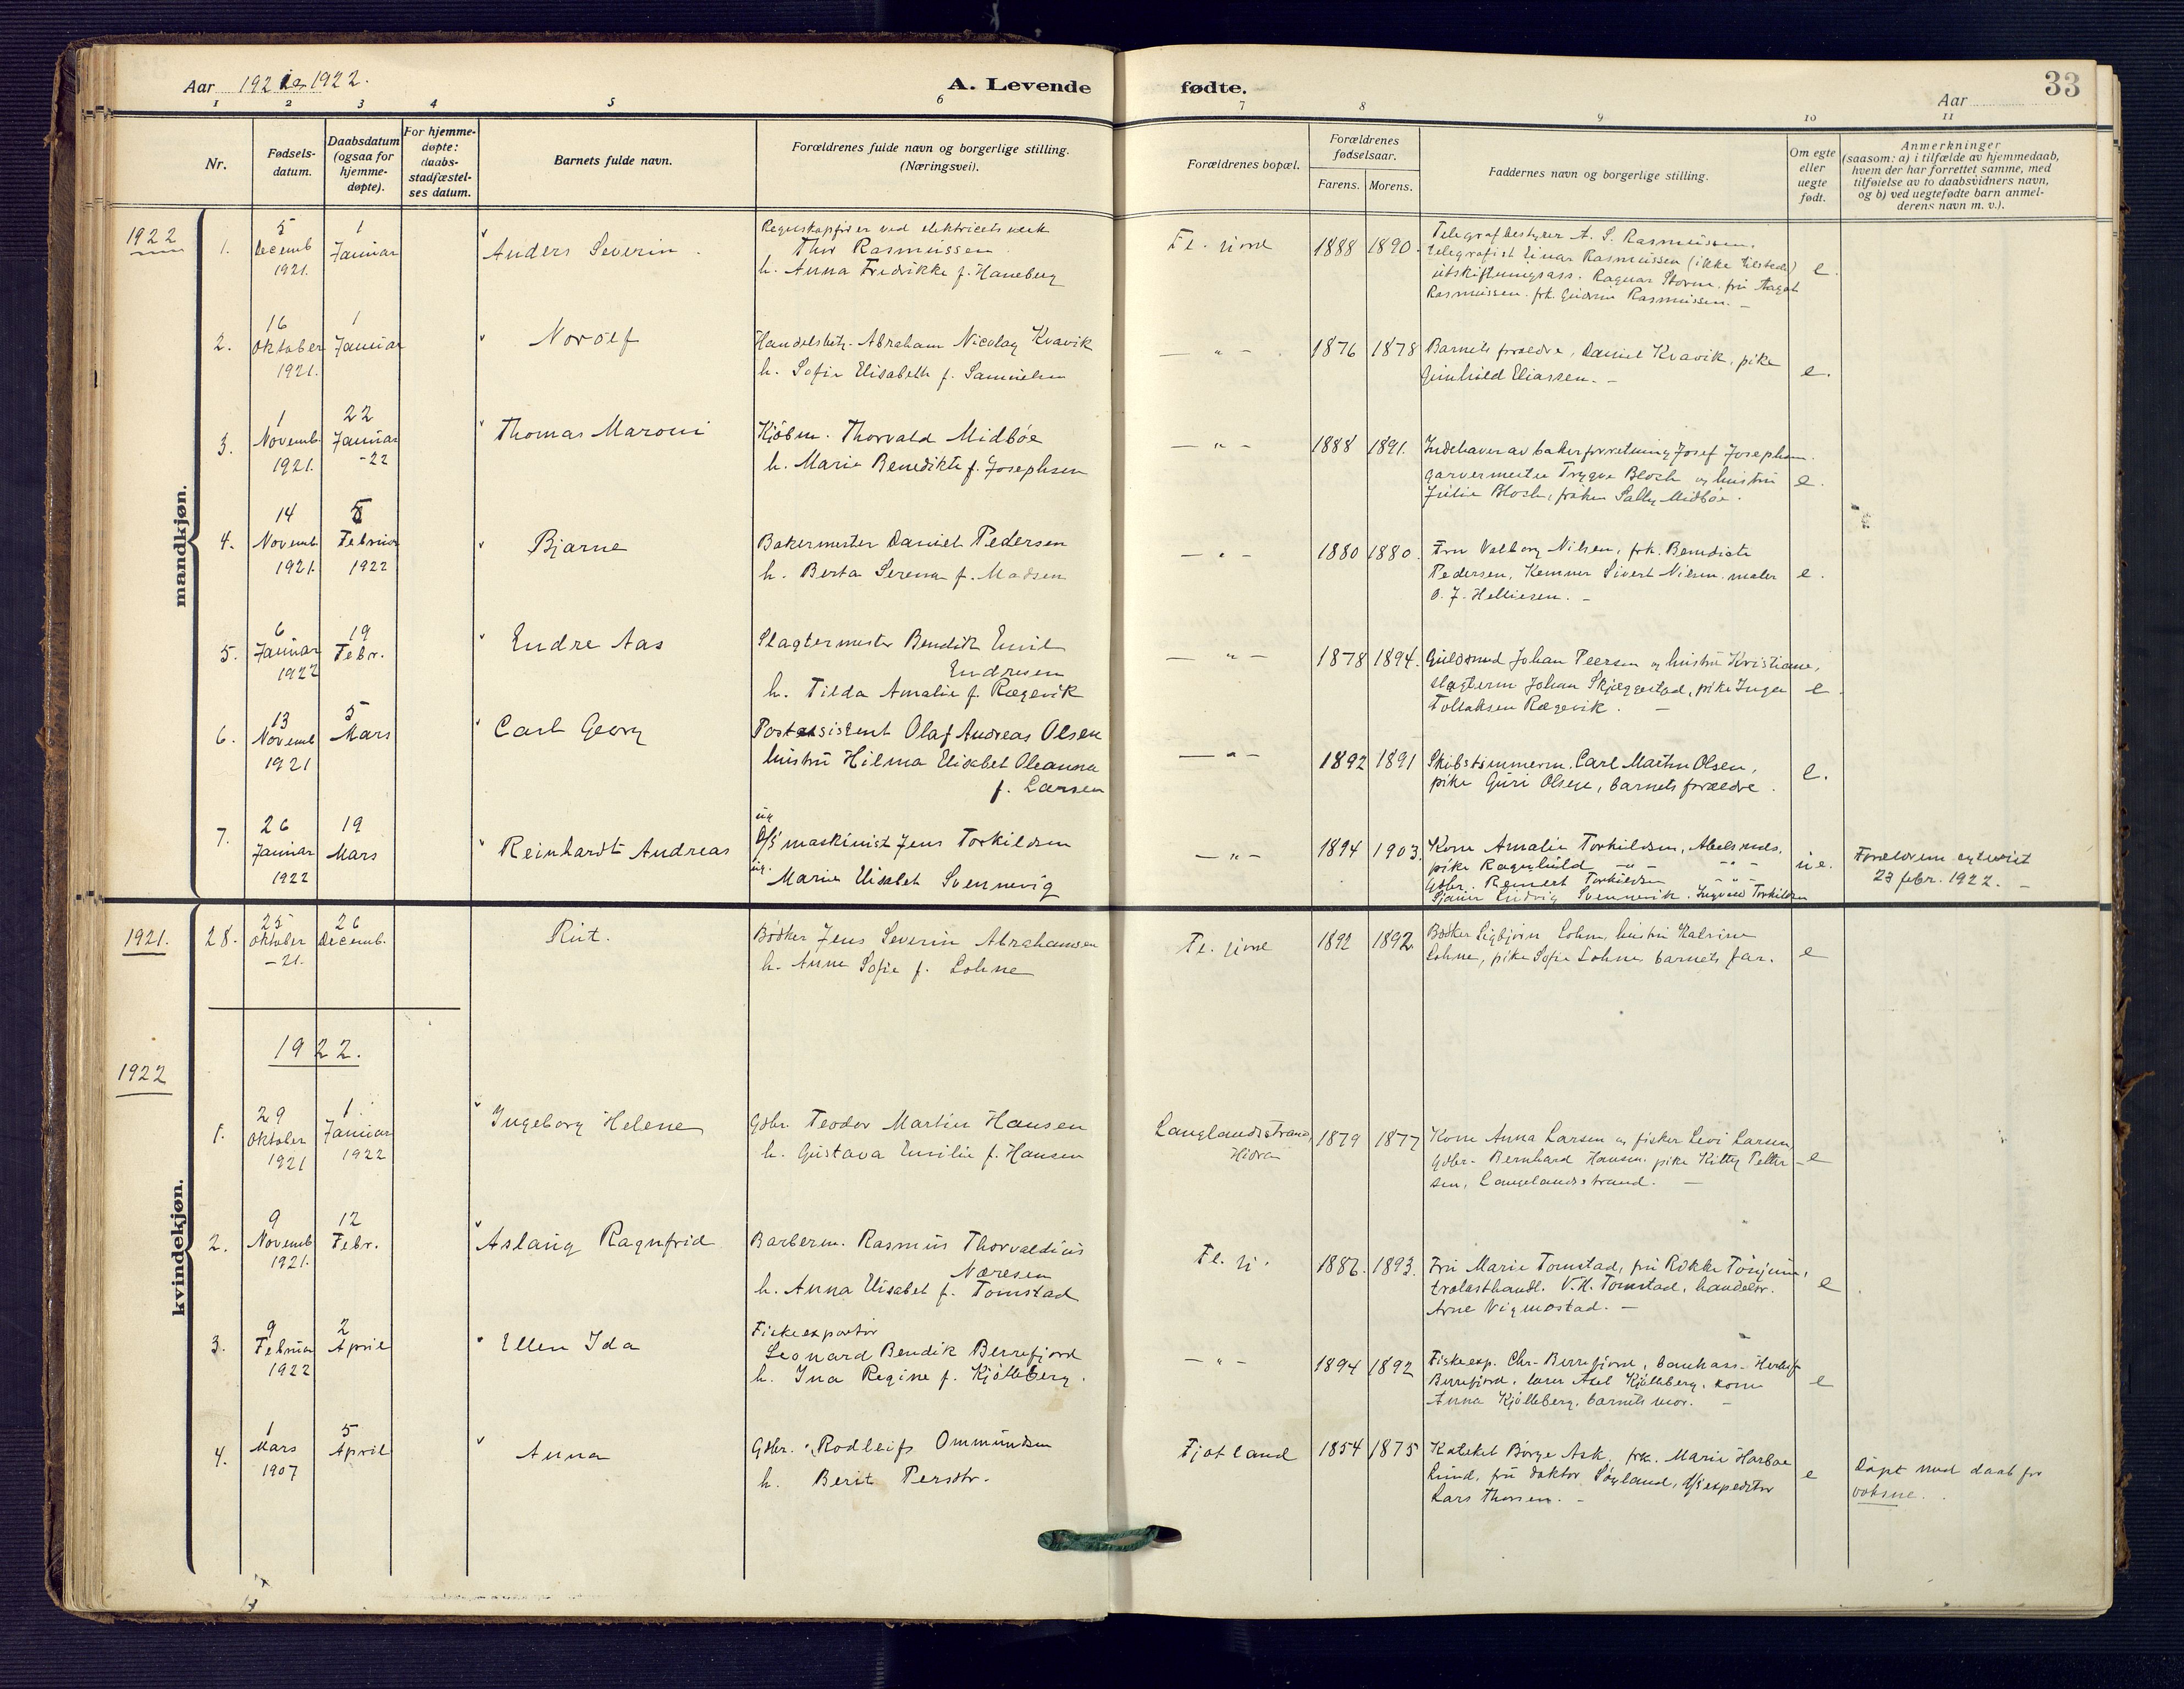 Aar 1921 og 1922.
A. Levende fødte.
Aar
33
1 2 3 4 5 6 7 8 9 10 11
Nr.
Fødsels-
datum.
Daabsdatum
(ogsaa for
hjemme-
døpte).
For hjemme-
døpte:
daabs-
stadfæstel-
ses datum.
Barnets fulde navn.
Forældrenes fulde navn og borgerlige stilling.
(Næringsvei).
Forældrenes bopæl.
Forældrenes
fødselsaar.
Farens. Morens.
Faddernes navn og borgerlige stilling.
Om egte
eller
uegte
født.
Anmerkninger
(saasom: a) i tilfælde av hjemmedaab,
hvem der har forrettet samme, med
tilføielse av to daabsvidners navn,
og b) ved uegtefødte barn anmel-
derens navn m. v.).
mandkjøn.
1922
1.
5
Decemb
1921.
1
Januar
Anders Severin
Regnskapsfører ved elektricitetsverk
Thor Rasmussen
h. Anna Fredrikke f. Haneberg
Fl. fjord
1888 1890.
Telegrafbestyrer A. S. Rasmussen,
telegrafist Einar Rasmussen (ikke tilstede)
utskiftningsass. Ragnar Storm. fru Aagot
Rasmussen. frk. Gudrun Rasmussen. –
e.
2.
16
Oktober
1921.
1
Januar
Norolf
Handelsbetj. Abraham Nicolay Kvavik
h. Sofie Elisabeth f. Samuelsen
— " –
1876 1878
Barnets forældre, Daniel Kvavik, pike
Gunhild Eliassen. –
e.
3.
1
Novemb.
1921.
22
Januar
-22
Thomas Maroni
Kjøbm. Thorvald Midbøe
h. Marie Benedikte f. Josephsen
— " –
1888 1891.
Indehaver av bakerforretning Josef Josephsen.
garvermester Trygve Bloch og hustru
Julie Bloch, frøken Sally Midbøe.
e.
4.
14
Novemb
1921.
5
Februar
1922
Bjarne
Bakermester Daniel Pedersen
h. Berta Serena f. Madsen
— " –
1880 1880.
Fru Valborg Nilsen, frk. Benedicte
Pedersen, Kemner Sivert Nilsen. maler
O. J. Helliesen. –
e.
5.
6
Januar
1922
19
Febr.
Endre Aas
Slagtermester Bendik Emil
Endresen
h. Tilda Amalie f. Rægevik
— " –
1878 1894.
Guldsmed Johan Peersen og hustru Kristiane,
slagterm Johan Skjeggestad, pike Inga
Tollaksen Rægevik. –
e.
6.
13
Novemb
1921
5
Mars
Carl Georg
Postassistent Olaf Andreas Olsen
hustru Hilma Elisabet Oleanna
f. Larsen
— " –
1892 1891
Skibstimmerm. Carl Martin Olsen,
pike Guri Olsen, barnets forældre.
e.
7.
26
Januar
1922
19
Mars
Reinhardt Andreas
ug
D/S maskinist Jens Torkildsen
ug. Marie Elisabet Svennevig
— " –
1894 1903.
Kone Amalie Torkildsen, Abelsnes,
pike Ragnhild – " – – " –
Gdbr. Reinert Torkildsen – " –
Sjøm Ludvig Svennevik. Ingvald Torkildsen
u e.
Forældrene egteviet
23 febr. 1922. –
kvindekjøn.
1921.
28.
25
Oktober
-21.
26
Decemb.
Rut.
Bødker Jens Severin Abrahamsen
h. Anne Sofie f. Lohne
Fl. fjord
1892 1892.
Bødker Sigbjørn Lohne, hustru Katrine
Lohne, pike Sofie Lohne barnets far.
e
1922.
1922
1.
29
Oktober
1921
1.
Januar
1922
Ingeborg Helene
Gdbr. Teodor Martin Hansen
h. Gustava Emilie f. Hansen
Langlandsstrand,
Hidra
1879 1877
Kone Anna Larsen og fisker Levi Larsen,
Gdbr. Bernhard Hansen. pike Kitty Petter-
sen, Langelandsstrand. –
e
2.
9
Novemb
1921.
12
Febr.
Aslaug Ragnfrid
Barberm. Rasmus Thorvaldius
Næresen
h. Anna Elisabet f. Tomstad
Fl. fj.
1886. 1893.
Fru Marie Tomstad, fru Rikke Tønjum,
trælasthandl. V. H. Tomstad, handelsr.
Arne Vigmostad. –
e
3.
9
Februar
1922
2
April
Ellen Ida
Fiskeexportør
Leonard Bendik Berrefjord
h. Ina Regine f. Kjølleberg.
— " –
1894 1892
Fiskeexp. Chr. Berrefjord, bankass.
Berrefjord, lærer Axel Kjølleberg. kone
Anna Kjølleberg, barnets mor. –
e
4.
1
Mars
1907
5
April
Anna
Gdbr. Rodleifs Ommundsen
h. Berit Persdtr.
Fjotland
1854 1875
Kateket Børge Ask, frk. Marie Harboe
Lund, fru doktor Søyland, D/S expeditør
Lars Thorsen. –
e
Døpt med daab for
voksne.